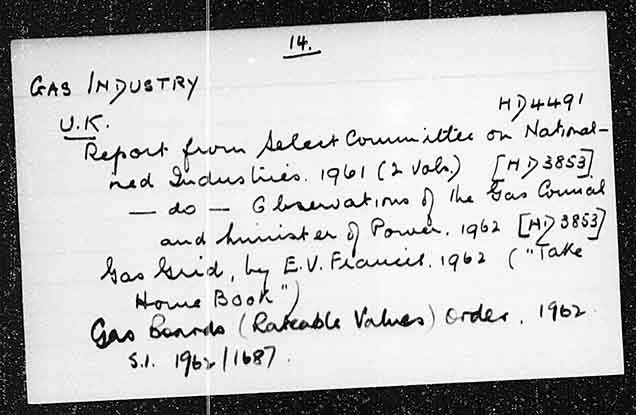 14.
GAS INDUSTRY
HD4491
U.K.
Report from Select Committee on National-
ised Industries. 1961 (2 Vols.) [HD3853]
— do — Observations of the Gas Council
and Minister of Power. 1962 [HD3853]
Gas Grid, by E.V. Francis. 1962 ("Take
Home Book")
Gas Boards (Rateable Values) Order. 1962.
S.I. 1962/1687.